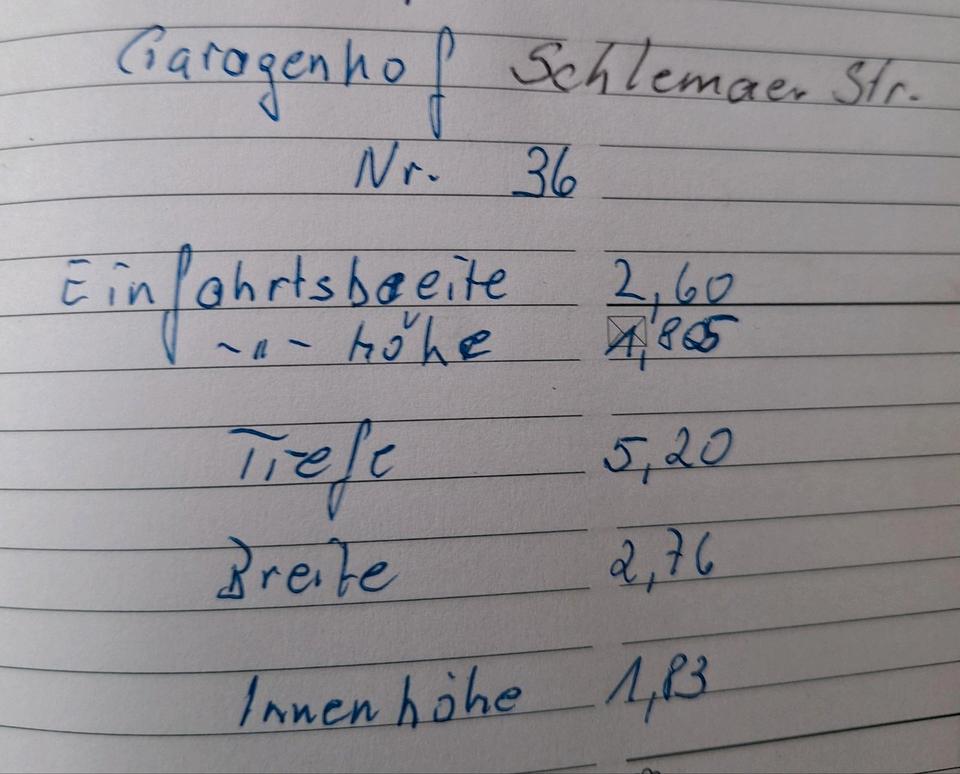 Garagenhof Schlemaer Str.
Nr. 36
Einfahrtsbreite 2,60
~ " - höhe 1,805
Tiefe 5,20
Breite 2,76
Innenhöhe 1,83